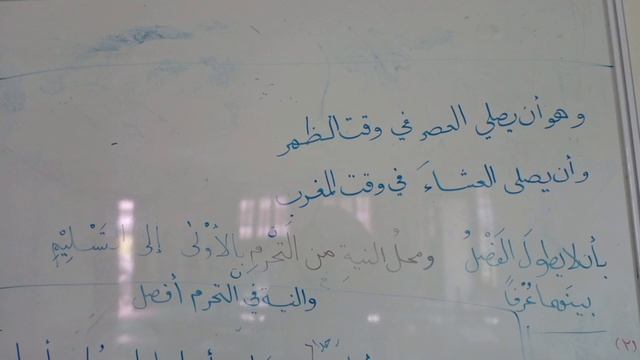 وهو أن يصلي العصر في وقت الظهر
وأن يصلى العشاءَ في وقت المغرب
بأن لا يطولَ الفَصْلُ ومحلُ النيةِ من التَّحَرُّمِ بالأُوْلَى إلى التَسْلِيْمِ
بينهما عُرْفًا والنية في التَّحرم أفضل
(٢)